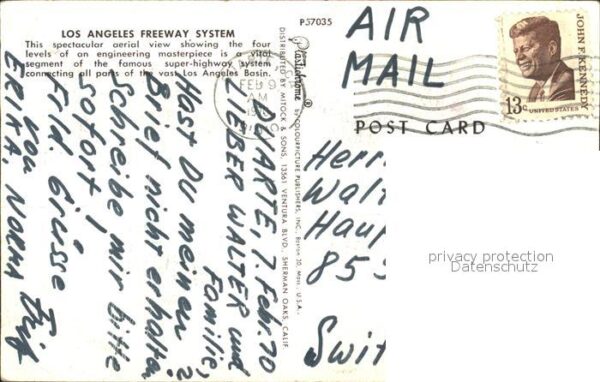 LOS ANGELES FREEWAY SYSTEM
This spectacular aerial view showing the four
levels of an engineering masterpiece is a vital
segment of the famous super-highway system
connecting all parts of the vast Los Angeles Basin.
P57035
Plastichrome ® by COLOURPICTURE PUBLISHERS, INC., Boston 30, Mass., U.S.A.
DISTRIBUTED BY MITOCK & SONS, 13561 VENTURA BLVD., SHERMAN OAKS, CALIF.
AIR
MAIL
FEB 9
AM
JOHN F. KENNEDY
13c UNITED STATES
POST CARD
DUARTE, 7. Febr. 70
LIEBER WALTER und
Familie,
Hast Du meinen
Brief nicht erhalten?
Schreibe mir bitte
sofort!
Frdl. Grüsse
Herr
Wal
Haup
85
Swit
privacy protection
Datenschutz